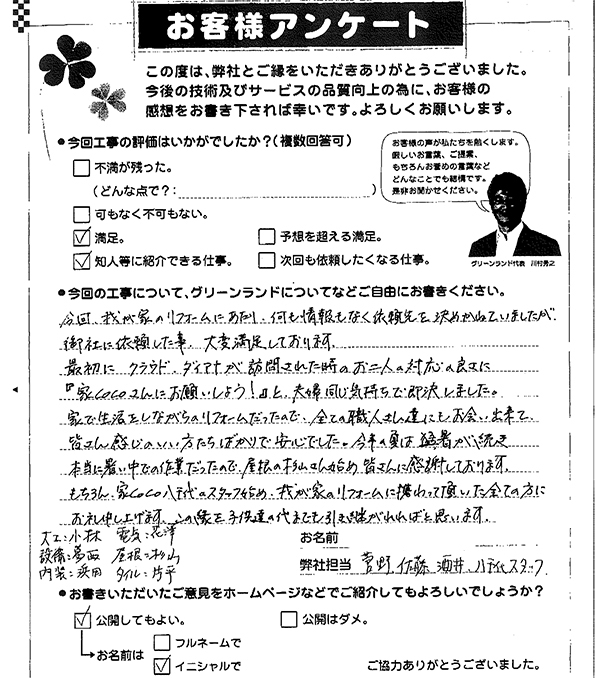 お客様アンケート
この度は、弊社とご縁をいただきありがとうございました。
今後の技術及びサービスの品質向上の為に、お客様の
感想をお書き下されば幸いです。よろしくお願いします。
●今回工事の評価はいかがでしたか?(複数回答可)
不満が残った。
(どんな点で?: )
可もなく不可もない。
満足。
予想を超える満足。
知人等に紹介できる仕事。
次回も依頼したくなる仕事。
お客様の声が私たちを動くします。
厳しいお言葉、ご提案、
もちろんお誉めの言葉など
どんなことでも結構です。
是非お聞かせください。
グリーンランド代表
●今回の工事について、グリーンランドについてなどご自由にお書きください。
今回、我が家のリフォームにあたり、何も情報もなく依頼先を決めかねていましたが
御社に依頼した事、大変満足しております。
最初に クラウド、ダイアナが訪問された時のお二人の対応の良さに
『家COCOさんにお願いしよう!』と、夫婦同じ気持ちで即決しました。
家で生活をしながらのリフォームだったので、全ての職人さん達にもお会い出来て、
皆さん感じのいい方たちばかりで安心でした。今年の夏は猛暑が続き
本当に暑い中での作業だったので、屋根の杉山さん始め、皆さんに感謝しております。
もちろん、家COCO八千代のスタッフ始め、我が家のリフォームに携わって頂いた全ての方に
お礼申し上げます。この縁を子供達の代までも引き継がれればと思います。
大工:小林 電気:花澤
設備:葛西 屋根:杉山
内装:浜田 タイル:片平
お名前
弊社担当 菅野 佐藤 酒井、八千代スタッフ
●お書きいただいたご意見をホームページなどでご紹介してもよろしいでしょうか?
公開してもよい。
公開はダメ。
お名前は
フルネームで
イニシャルで
ご協力ありがとうございました。